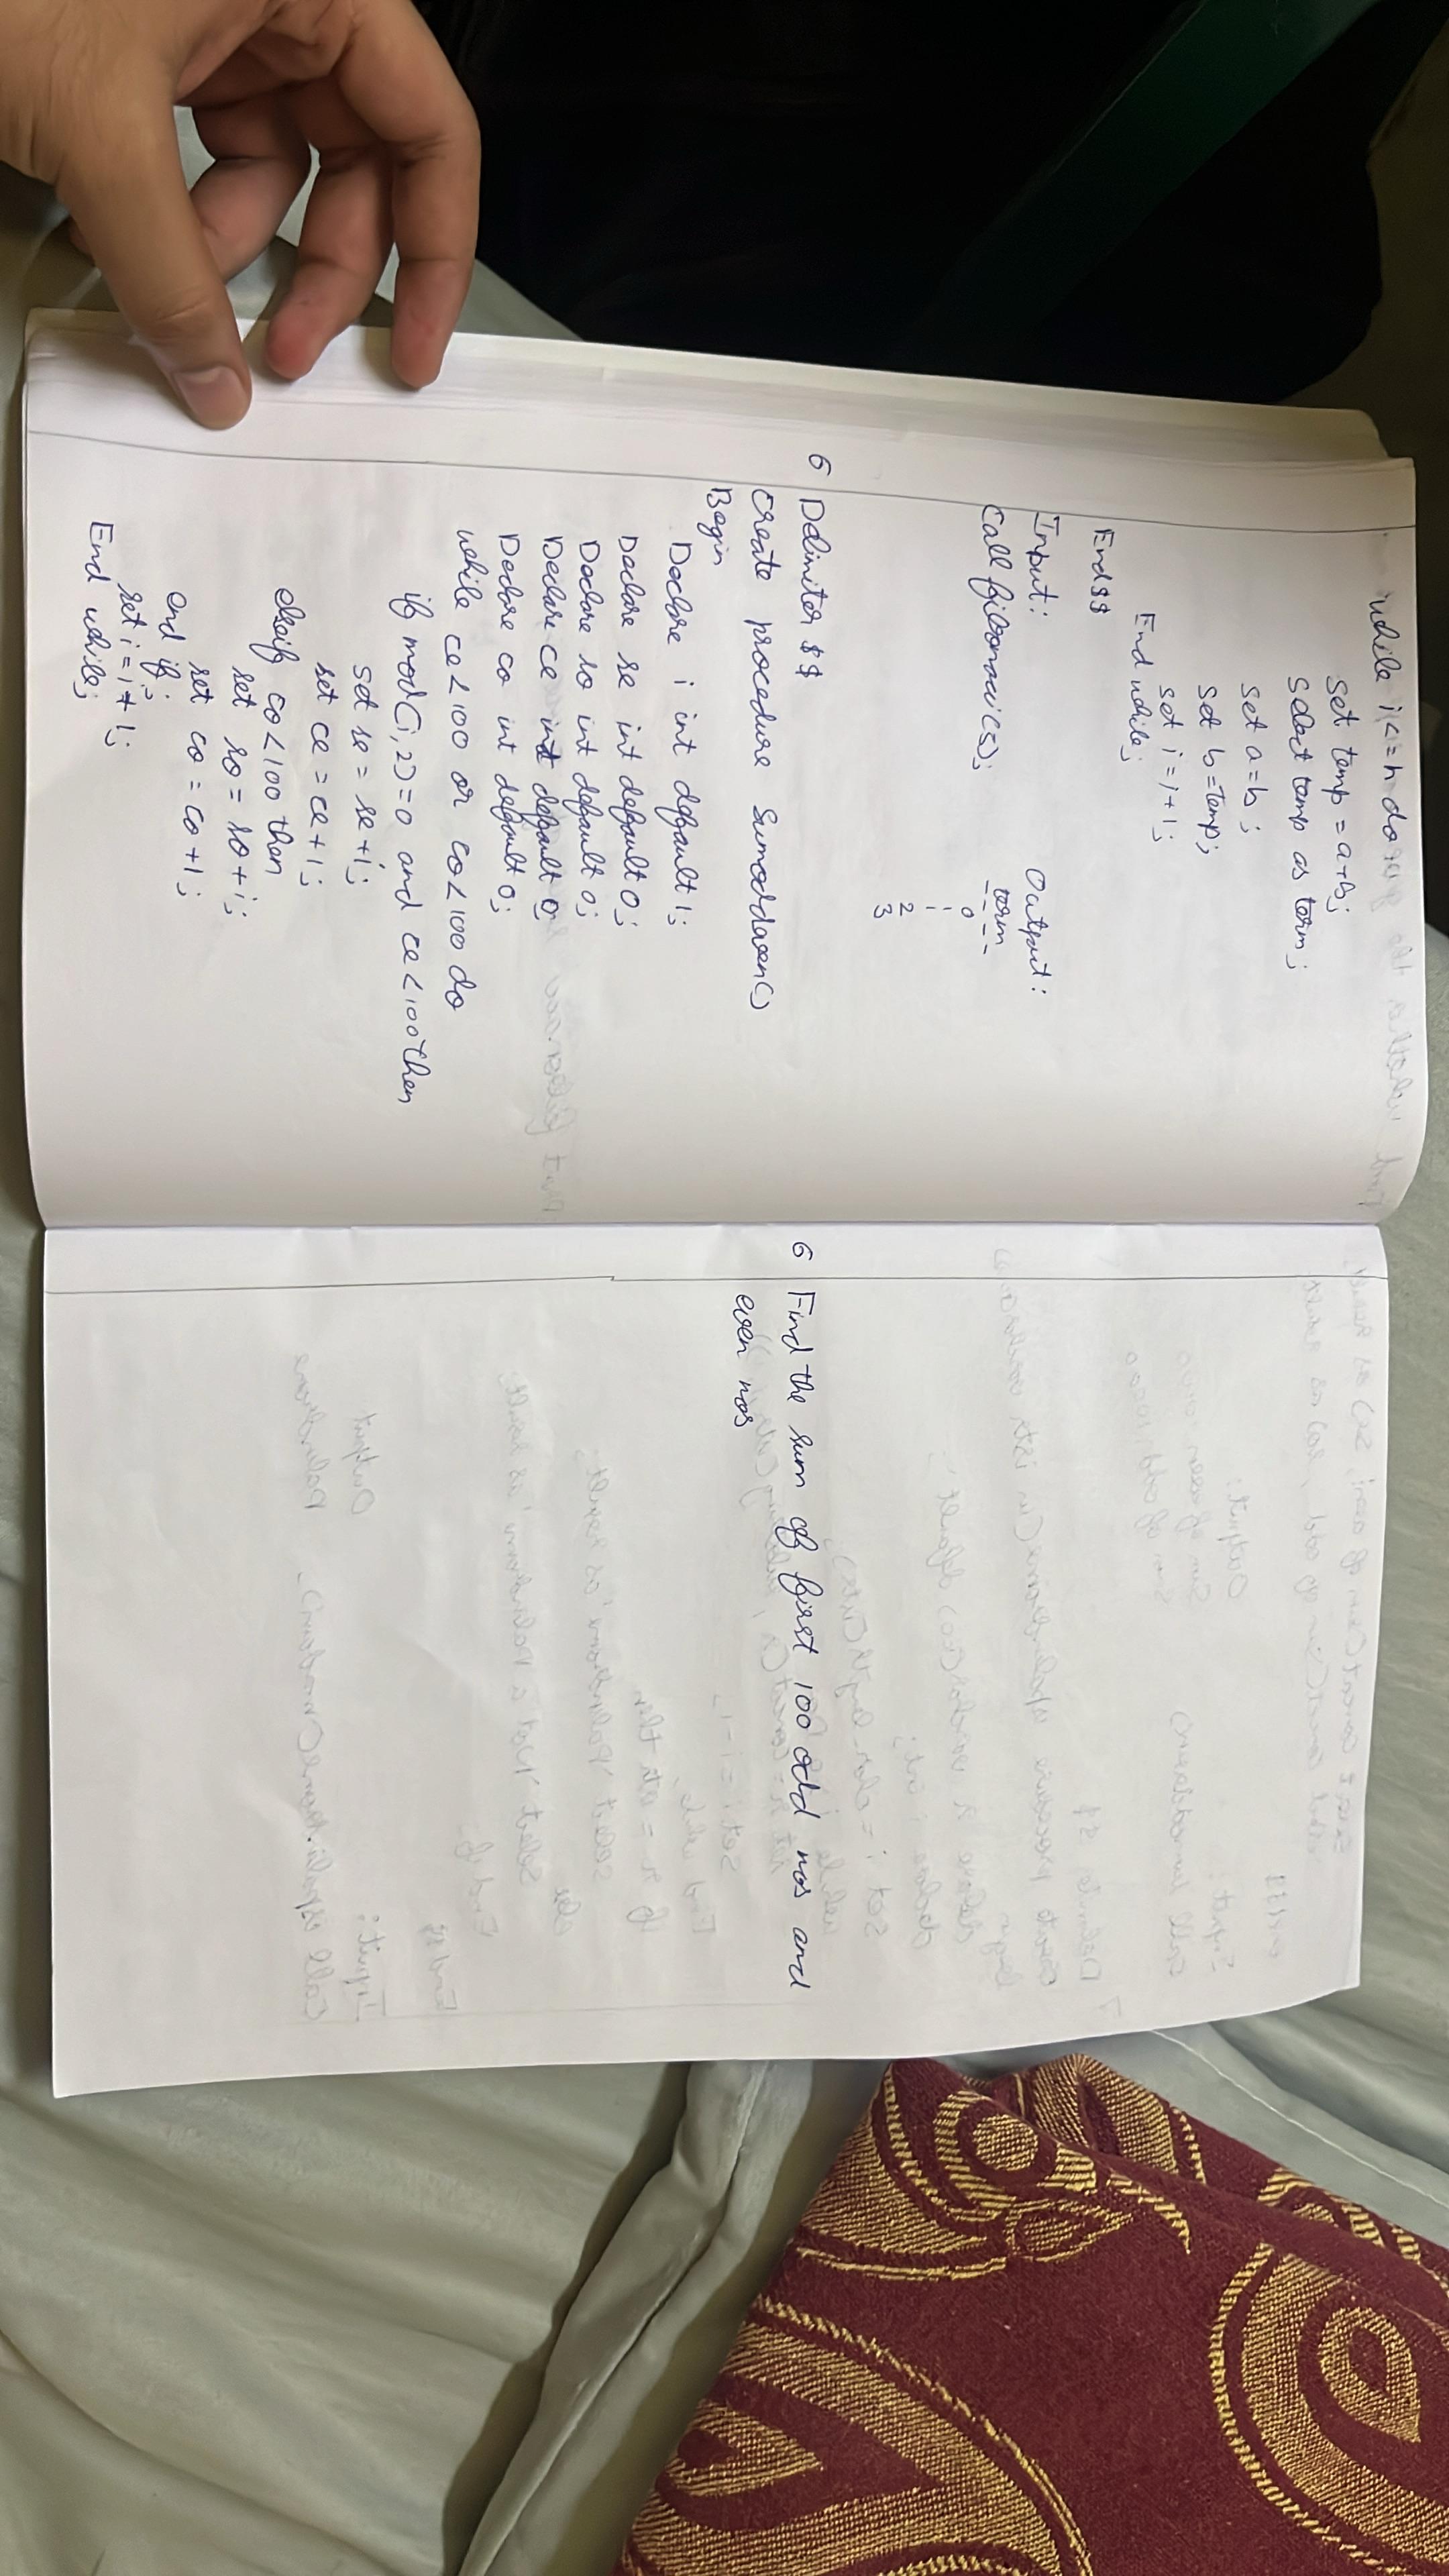 while i<=n do
set temp = a+b;
select temp as term;
set a=b;
set b=temp;
set i=i+1;
End while;
End$$
Input:
Output:
Call fibonacci(5);
term
0
1
1
2
3
6 Delimiter $$
Create procedure Sumoddeven()
Begin
Declare i int default 1;
Declare se int default 0;
Declare so int default 0;
Declare ce int default 0;
Declare co int default 0;
while ce<100 or co<100 do
if mod(i,2)=0 and ce<100 then
set se = se+i;
set ce = ce+1;
elseif co<100 then
set so = so+i;
set co = co+1;
end if;
set i=i+1;
End while;
6 Find the sum of first 100 odd nos and
even nos